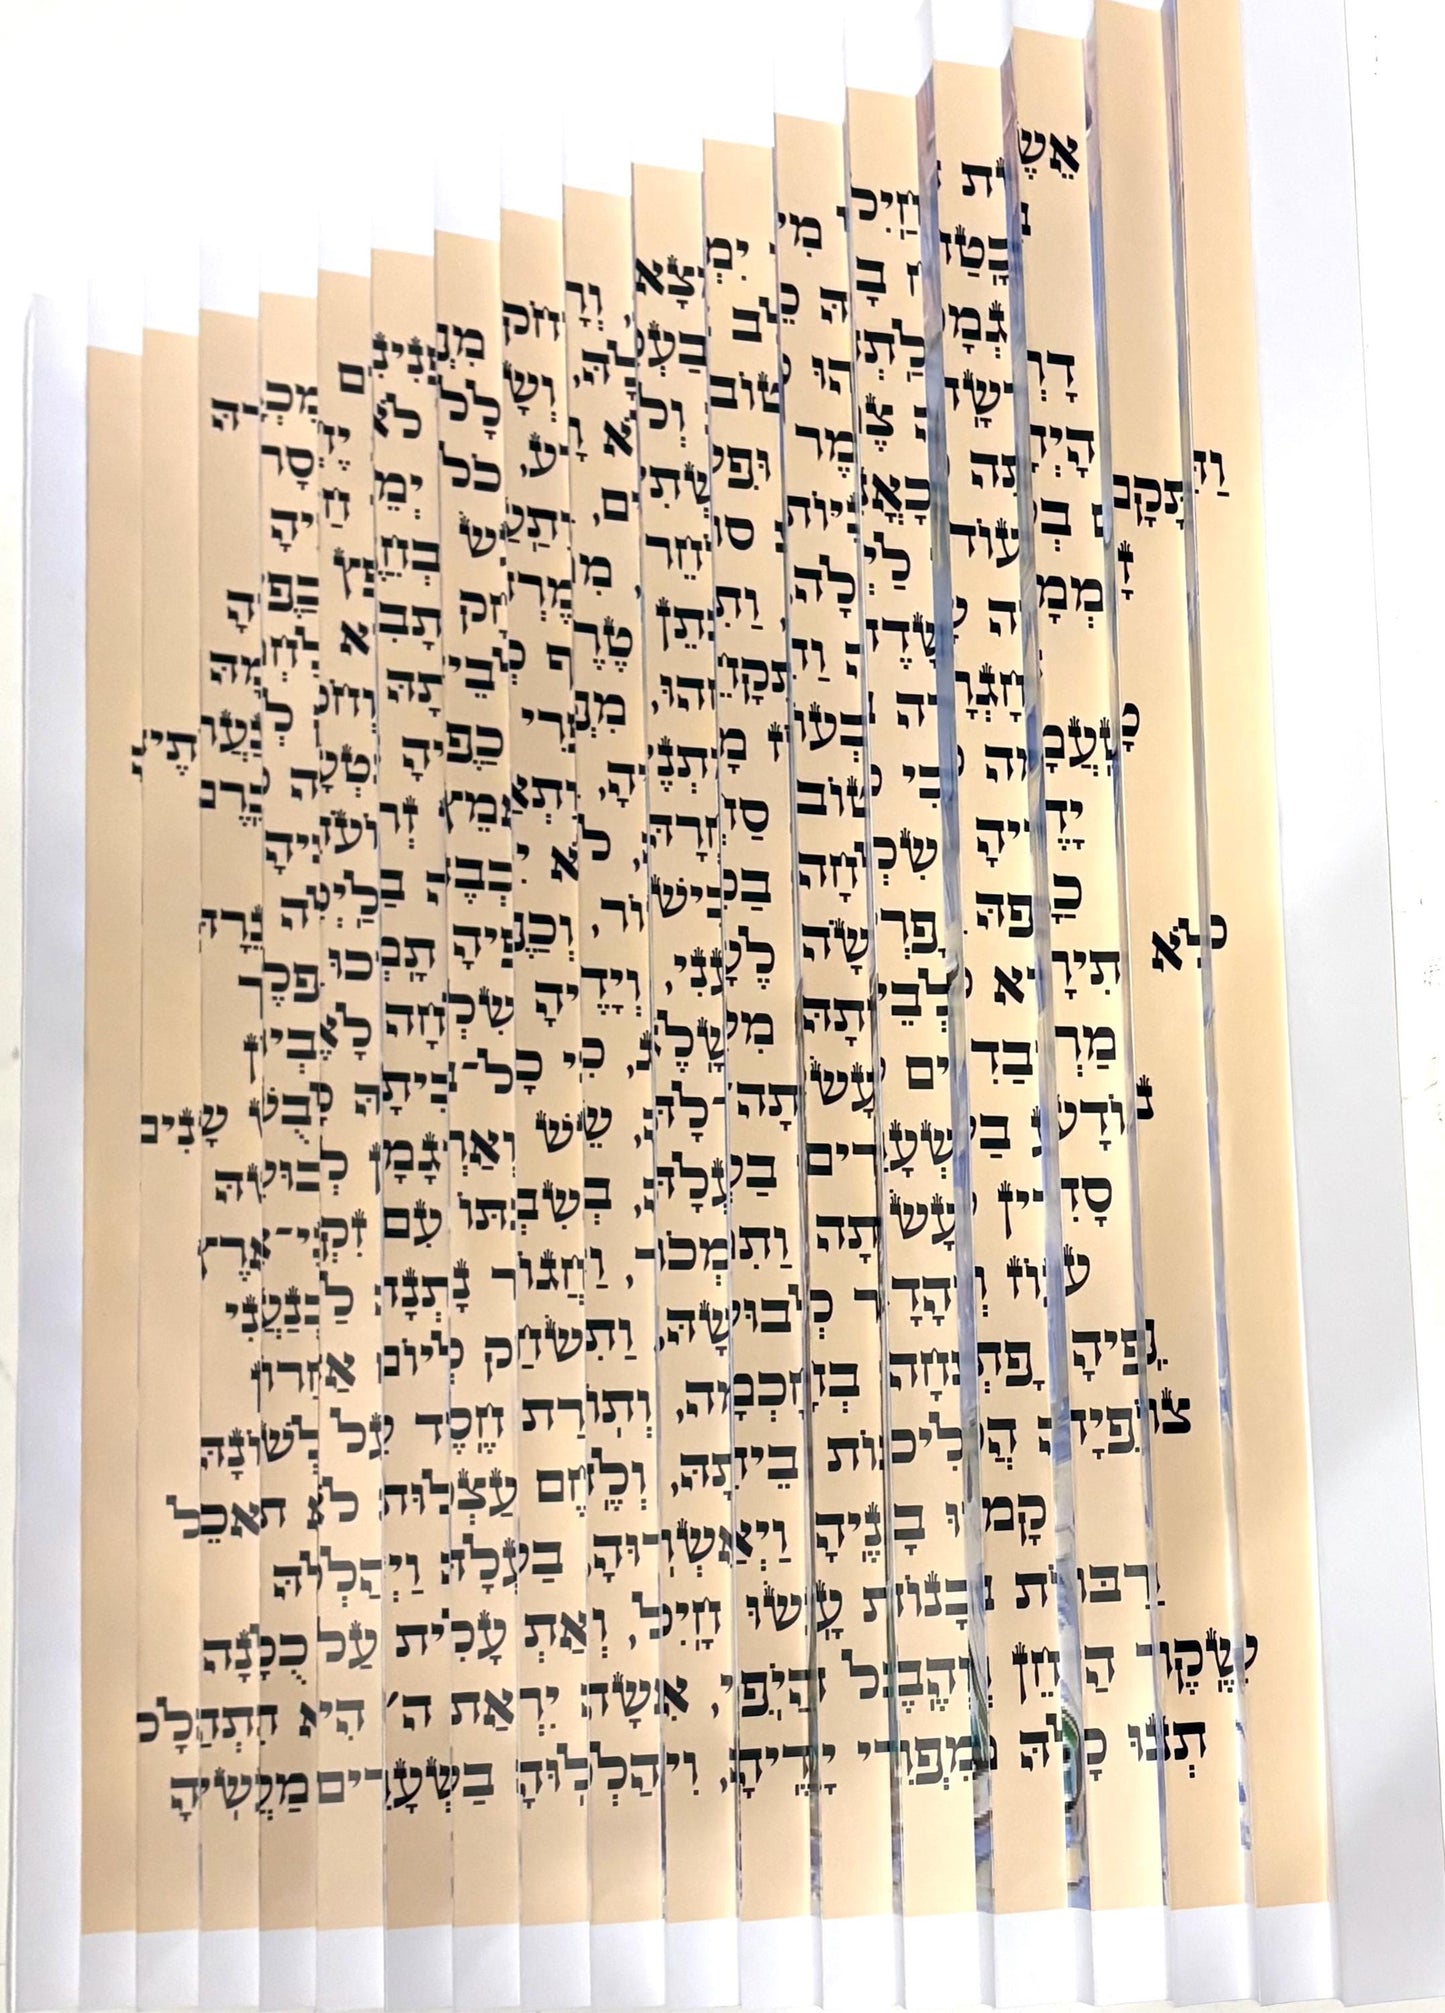 אֵשֶׁת חַיִל מִי יִמְצָא, וְרָחֹק מִפְּנִינִים מִכְרָהּ
בָּטַח בָּהּ לֵב בַּעְלָהּ, וְשָׁלָל לֹא יֶחְסָר
גְּמָלַתְהוּ טוֹב וְלֹא רָע, כֹּל יְמֵי חַיֶּיהָ
דָּרְשָׁה צֶמֶר וּפִשְׁתִּים, וַתַּעַשׂ בְּחֵפֶץ כַּפֶּיהָ
הָיְתָה כָּאֳנִיּוֹת סוֹחֵר, מִמֶּרְחָק תָּבִא לַחְמָהּ
וַתָּקָם בְּעוֹד לַיְלָה, וַתִּתֵּן טֶרֶף לְבֵיתָהּ וְחֹק לְנַעֲרֹתֶיהָ
זָמְמָה שָׂדֶה וַתִּקָּחֵהוּ, מִפְּרִי כַפֶּיהָ נָטְעָה כָּרֶם
חָגְרָה בְּעוֹז מָתְנֶיהָ, וַתְּאַמֵּץ זְרוֹעֹתֶיהָ
טָעֲמָה כִּי טוֹב סַחְרָהּ, לֹא יִכְבֶּה בַּלַּיְלָה נֵרָהּ
יָדֶיהָ שִׁלְּחָה בַכִּישׁוֹר, וְכַפֶּיהָ תָּמְכוּ פָלֶךְ
כַּפָּהּ פָּרְשָׂה לֶעָנִי, וְיָדֶיהָ שִׁלְּחָה לָאֶבְיוֹן
לֹא תִירָא לְבֵיתָהּ מִשָּׁלֶג, כִּי כָל־בֵּיתָהּ לָבֻשׁ שָׁנִים
מַרְבַדִּים עָשְׂתָה־לָּהּ, שֵׁשׁ וְאַרְגָּמָן לְבוּשָׁהּ
נוֹדָע בַּשְּׁעָרִים בַּעְלָהּ, בְּשִׁבְתּוֹ עִם זִקְנֵי־אָרֶץ
סָדִין עָשְׂתָה וַתִּמְכּוֹר, וַחֲגוֹר נָתְנָה לַכְּנַעֲנִי
עוֹז וְהָדָר לְבוּשָׁהּ, וַתִּשְׂחַק לְיוֹם אַחֲרוֹן
פִּיהָ פָּתְחָה בְחָכְמָה, וְתוֹרַת חֶסֶד עַל לְשׁוֹנָהּ
צוֹפִיָּה הֲלִיכוֹת בֵּיתָהּ, וְלֶחֶם עַצְלוּת לֹא תֹאכֵל
קָמוּ בָנֶיהָ וַיְאַשְּׁרוּהָ, בַּעְלָהּ וַיְהַלְלָהּ
רַבּוֹת בָּנוֹת עָשׂוּ חָיִל, וְאַתְּ עָלִית עַל כֻּלָּנָה
שֶׁקֶר הַחֵן וְהֶבֶל הַיֹּפִי, אִשָּׁה יִרְאַת ה' הִיא תִתְהַלָּל
תְּנוּ לָהּ מִפְּרִי יָדֶיהָ, וִיהַלְלוּהָ בַשְּׁעָרִים מַעֲשֶׂיהָ